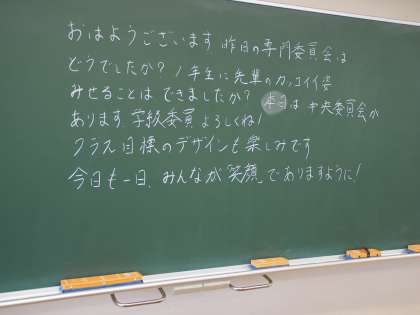 おはようございます 昨日の専門委員会は
どうでしたか？1年生に先輩のカッコイイ姿
みせることは できましたか？ 本日は 中央委員会が
あります 学級委員 よろしくね！
クラス目標のデザインも楽しみです
今日も一日、みんなが“笑顔”でありますように！